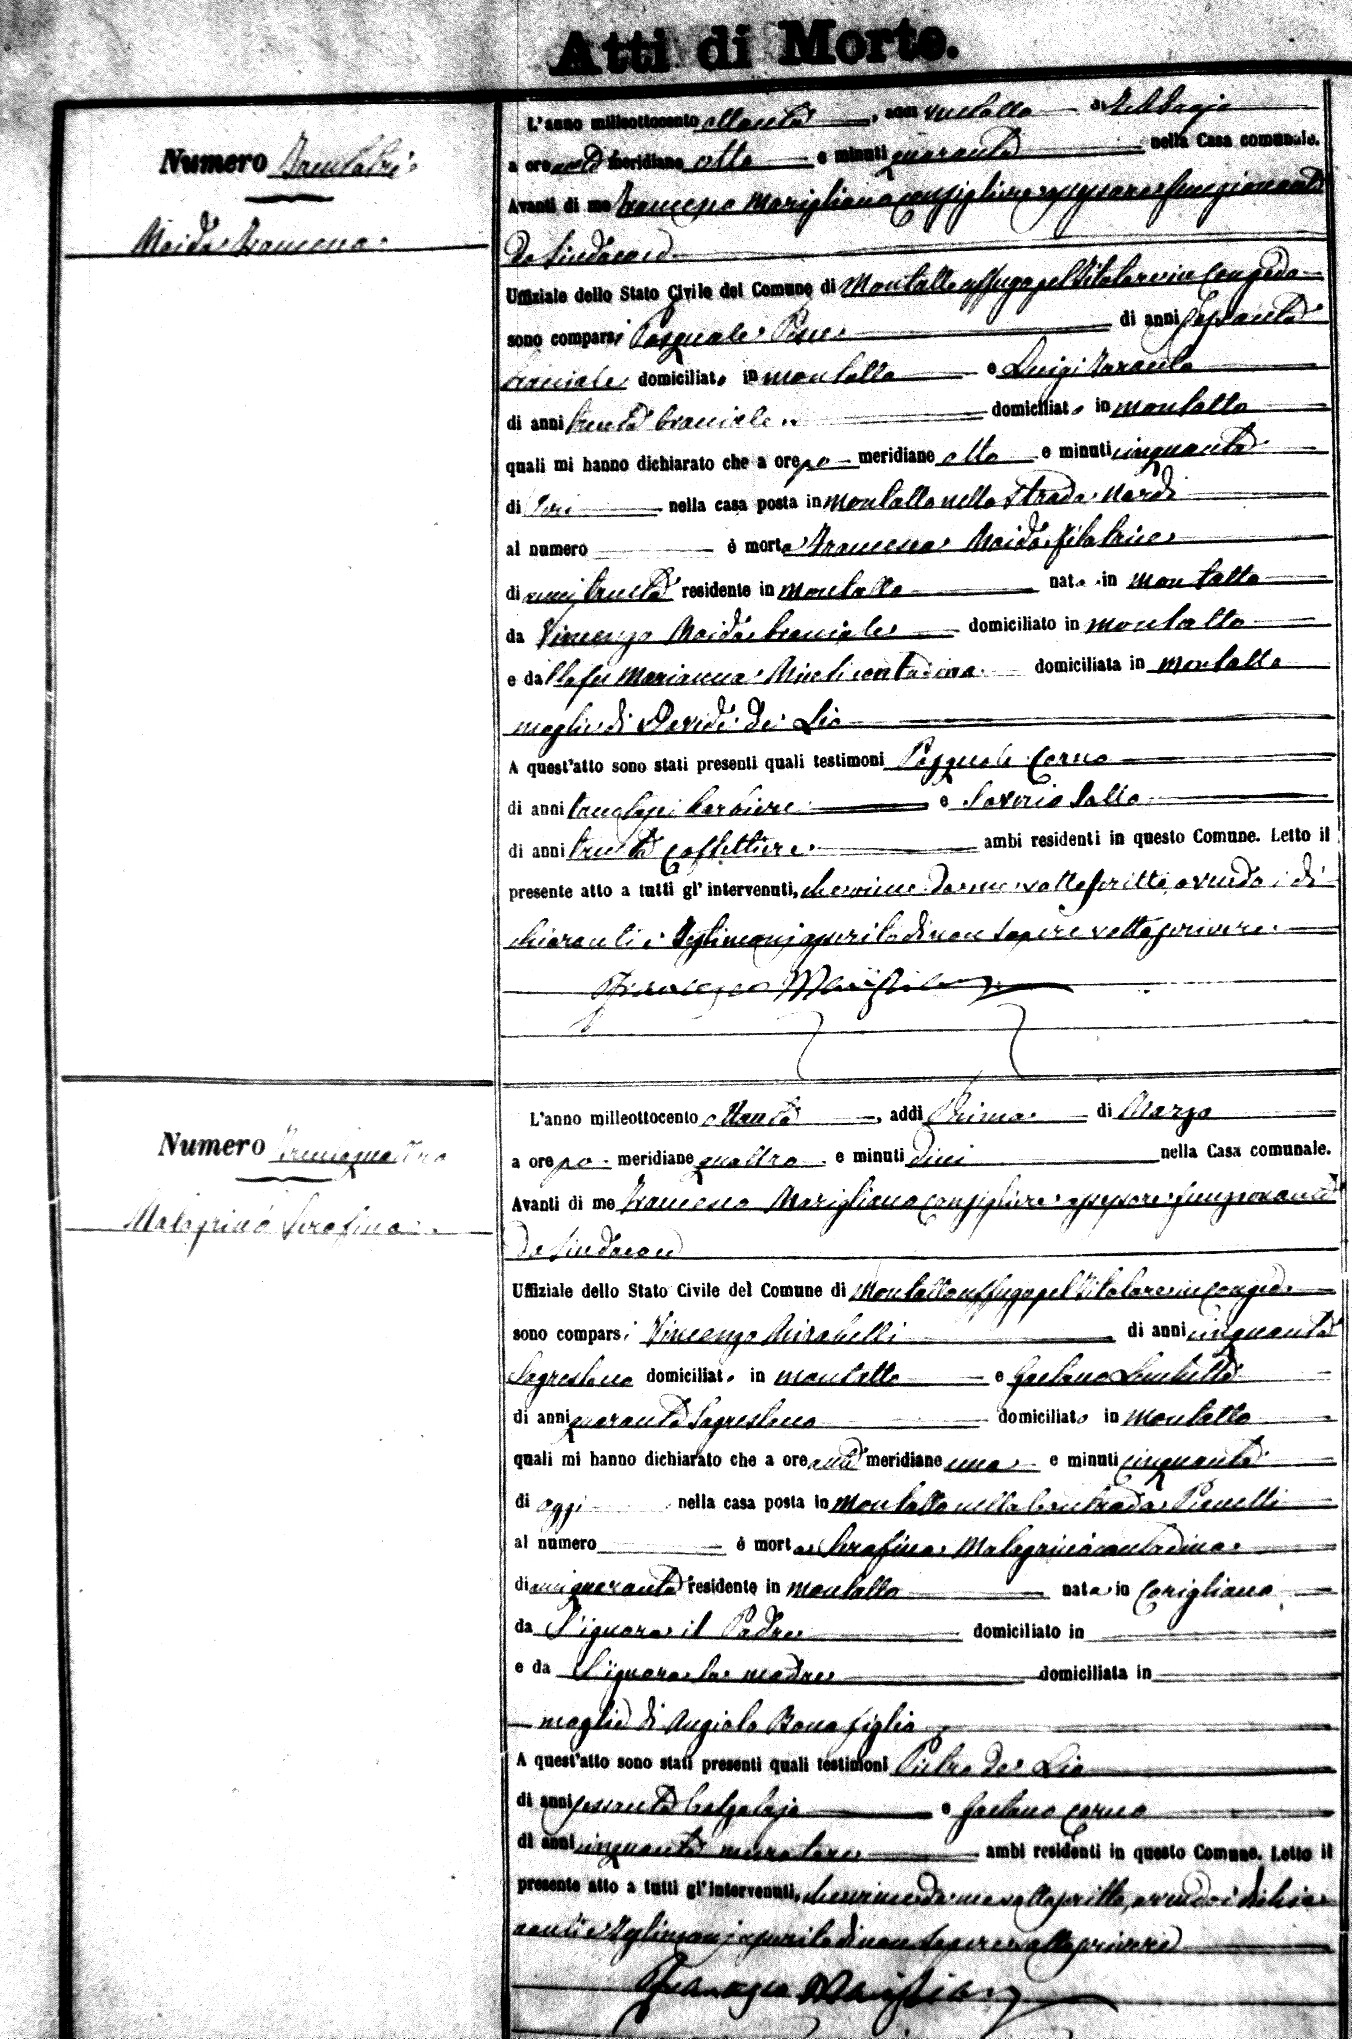 Atti di Morte.
Numero Trentatrè
Maida Francesca
L'anno milleottocento ottanta, addì ventotto di Febbraio
a ore anti meridiane otto e minuti quaranta nella Casa comunale.
Avanti di me Francesco Marigliano Consigliere assessore funzionante
da Sindaco
Uffiziale dello Stato Civile del Comune di Montalto Uffugo pel titolare in congedo
sono comparsi Pasquale di anni sessanta
braciale domiciliato in Montalto e Luigi Taranto
di anni trenta braciale domiciliato in Montalto
quali mi hanno dichiarato che a ore po meridiane otto e minuti cinquanta
di ieri nella casa posta in Montalto nella Strada Nardi
al numero è morta Francesca Maida filatrice
di anni trenta residente in Montalto nata in Montalto
da Vincenzo Maida braciale domiciliato in Montalto
e dalla fu Marianna contadina domiciliata in Montalto
moglie di Davide de Lio
A quest'atto sono stati presenti quali testimoni Pasquale Corno
di anni barbiere e Saverio Salto
di anni trenta Caffettiere ambi residenti in questo Comune. Letto il
presente atto a tutti gl'intervenuti, che viene da me sottoscritto, avendo i di
chiaranti e testimonj asserito di non sapere sottoscrivere.
Francesco Marigliano
Numero Trentaquattro
Malagrinò Serafina
L'anno milleottocento ottanta, addì Primo di Marzo
a ore po meridiane quattro e minuti dieci nella Casa comunale.
Avanti di me Francesco Marigliano Consigliere assessore funzionante
da Sindaco
Uffiziale dello Stato Civile del Comune di Montalto Uffugo pel titolare in congedo
sono comparsi Vincenzo Mirabelli di anni cinquanta
Sagrestano domiciliato in Montalto e Gaetano
di anni quaranta Sagrestano domiciliato in Montalto
quali mi hanno dichiarato che a ore anti meridiane una e minuti cinquanta
di oggi nella casa posta in Montalto nella Contrada Pianetti
al numero è morta Serafina Malagrinò contadina
di anni quaranta residente in Montalto nata in Corigliano
da S'ignora il Padre domiciliato in
e da S'ignora la madre domiciliata in
moglie di Angiolo Bonofiglio
A quest'atto sono stati presenti quali testimoni Pietro de Lio
di anni sessanta Calzolajo e Gaetano Corno
di anni cinquanta muratore ambi residenti in questo Comune. Letto il
presente atto a tutti gl'intervenuti, che viene da me sottoscritto, avendo i dichia
ranti e testimonj asserito di non sapere sottoscrivere
Francesco Marigliano